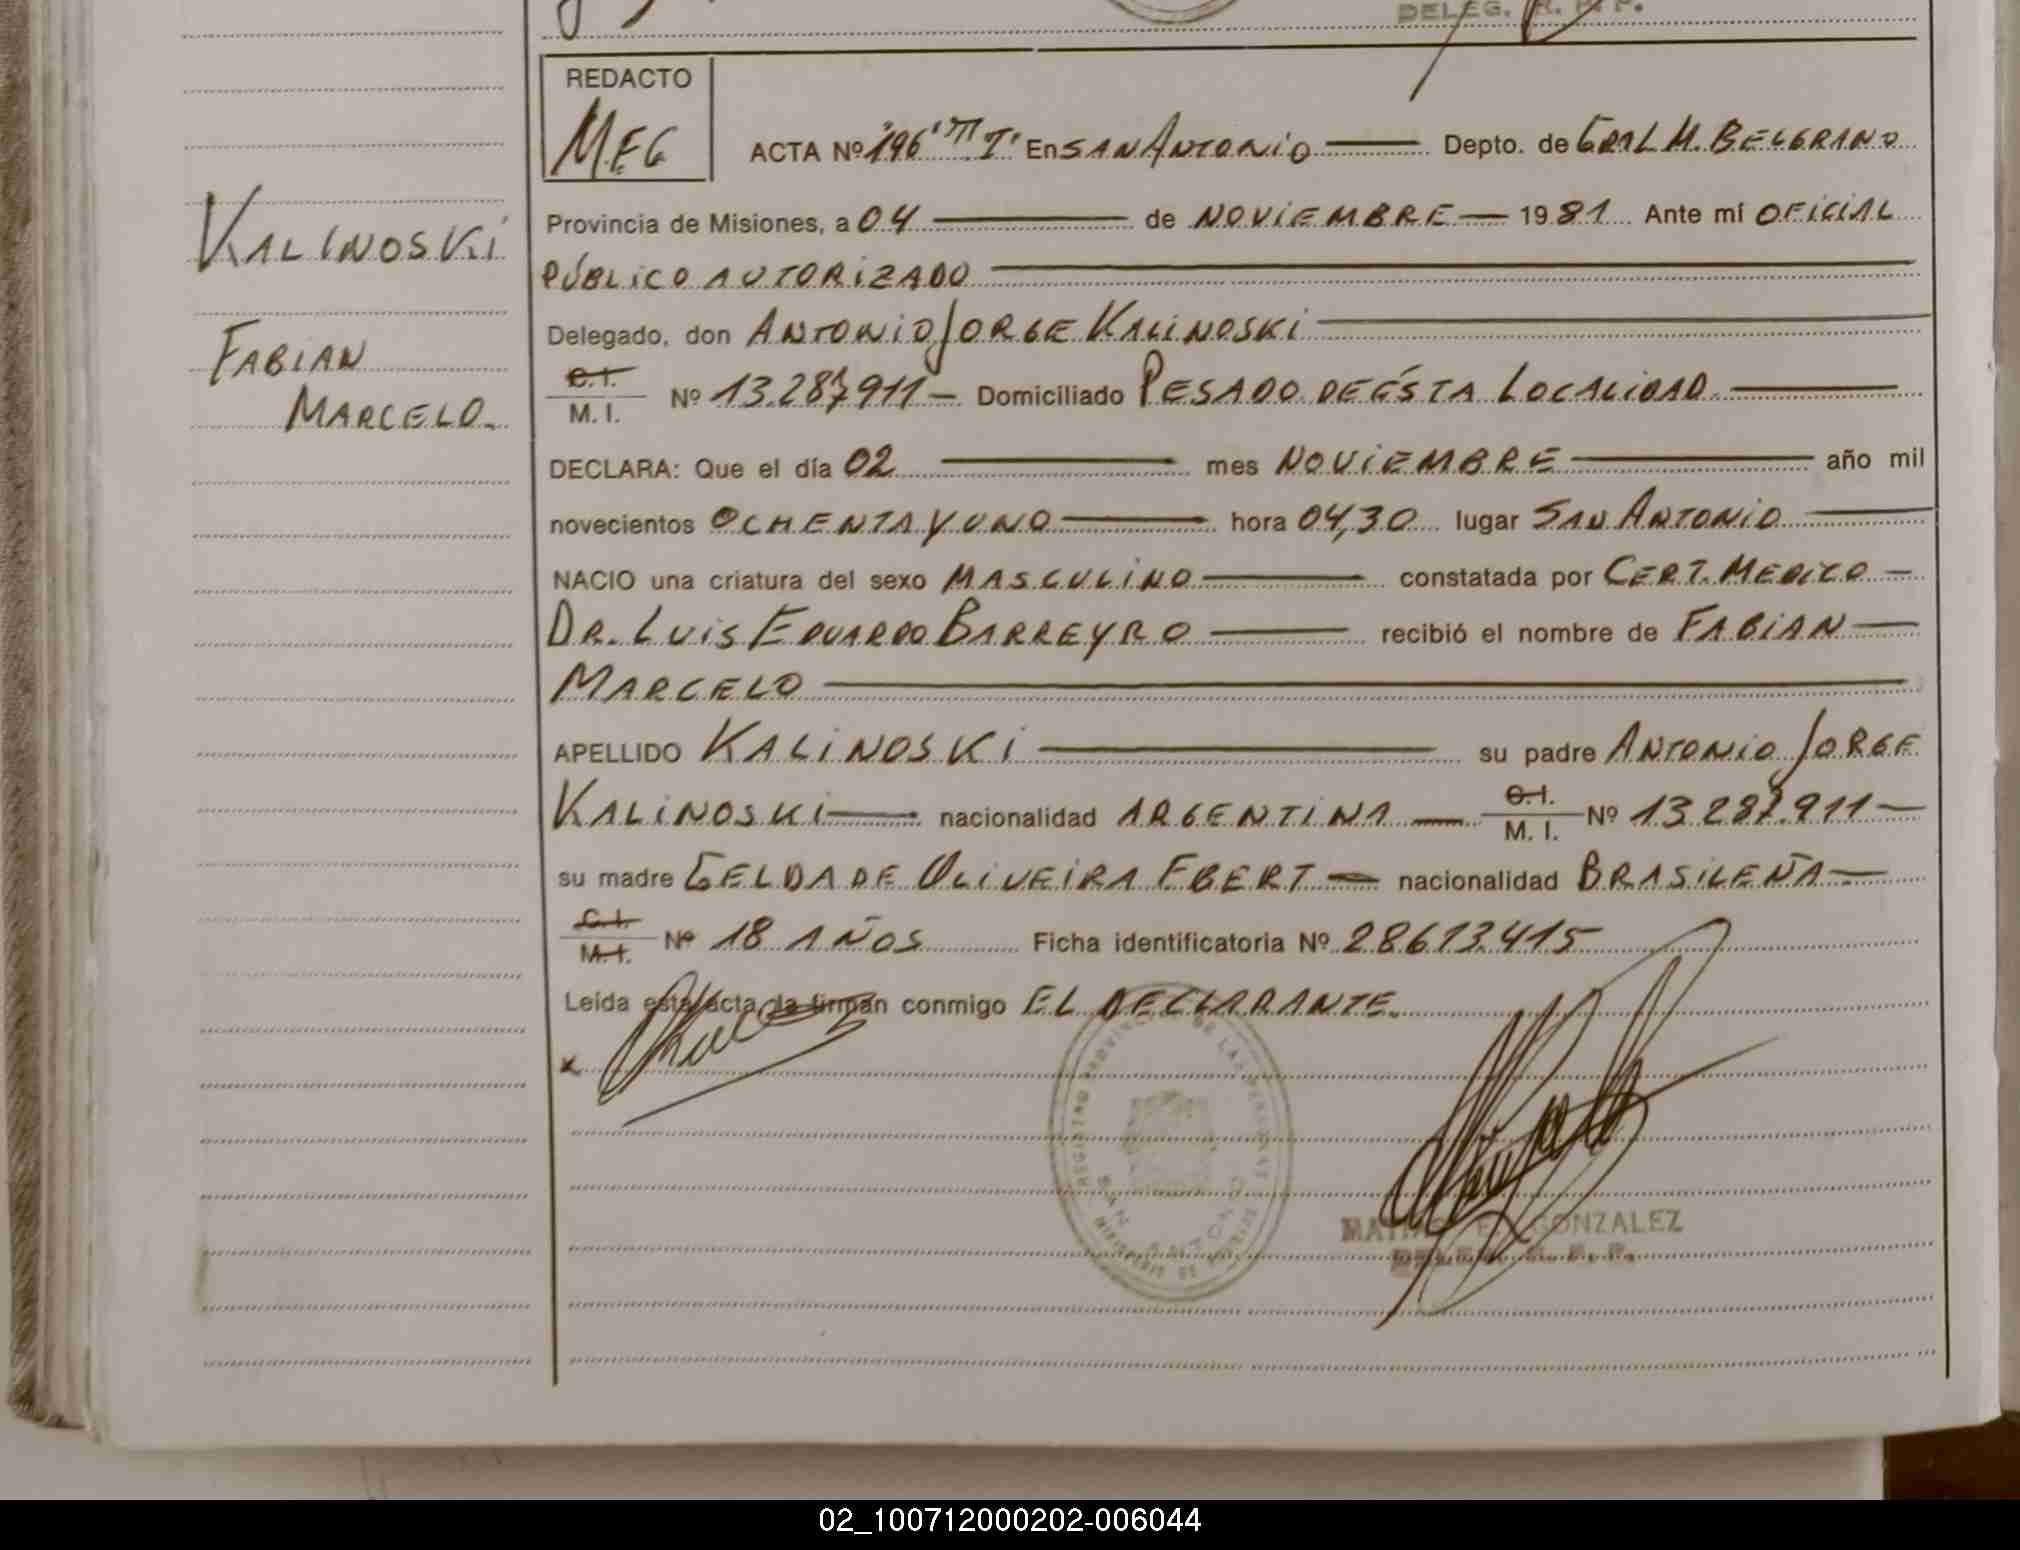 DELEG. R. P. P.
REDACTO
MEG
ACTA Nº 196 "T" I" En SAN ANTONIO Depto. de GRAL M. BELGRANO
Provincia de Misiones, a 04 de NOVIEMBRE 1981 Ante mí OFICIAL
PÚBLICO AUTORIZADO
Delegado, don ANTONIO JORGE KALINOSKI
C.I.
M. I. Nº 13.287.911 Domiciliado PESADO DE ÉSTA LOCALIDAD.
DECLARA: Que el día 02 mes NOVIEMBRE año mil
novecientos OCHENTA Y UNO hora 04,30 lugar SAN ANTONIO
NACIO una criatura del sexo MASCULINO constatada por CERT. MEDICO
DR. LUIS EDUARDO BARREYRO recibió el nombre de FABIAN
MARCELO
APELLIDO KALINOSKI su padre ANTONIO JORGE
KALINOSKI nacionalidad ARGENTINA C.I. M. I. Nº 13.287.911
su madre GELDA DE OLIVEIRA EBERT nacionalidad BRASILEÑA
C.I.
M.I. Nº 18 AÑOS Ficha identificatoria Nº 28613415
Leída esta acta la firman conmigo EL DECLARANTE.
x
REGISTRO PROVINCIAL DE LAS PERSONAS
SAN ANTONIO
MINISTERIO DE
E. GONZALEZ
KALINOSKI
FABIAN
MARCELO.
02_100712000202-006044